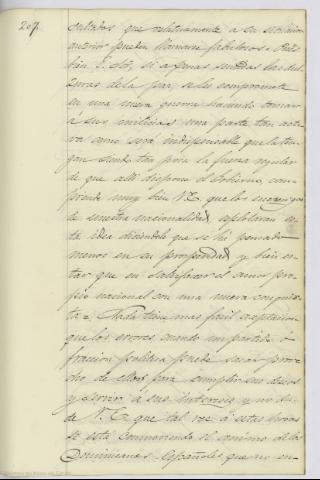 207.
sultados que relativamente a su situacion
anterior pueden llamarse fabulosos. Pues
bien E. Sor. si apenas sentidas las dul-
zuras de la paz, se les compromete
en una nueva guerra haciendo tomar
á sus milicias una parte tan acti-
va como será indispensable que la ten-
gan siendo tan poca la fuerza regular
de que alli dispone el Gobierno, com-
prende muy bien V.E. que los enemigos
de nuestra nacionalidad, esplotaran es-
ta idea diciendole que se ha pensado
menos en su prosperidad y bien es-
tar que en satisfacer el amor pro-
pio nacional con una nueva conquis-
ta = Nada tiene mas facil aceptacion
que los errores cuando un partido ó
fraccion politica puede sacar prove-
cho de ellos para cumplir sus deseos
y servir á sus intereses y no du-
de V.E. que tal vez á estas horas
se está conmoviendo el animo de los
Dominicanos-Españoles que no en-